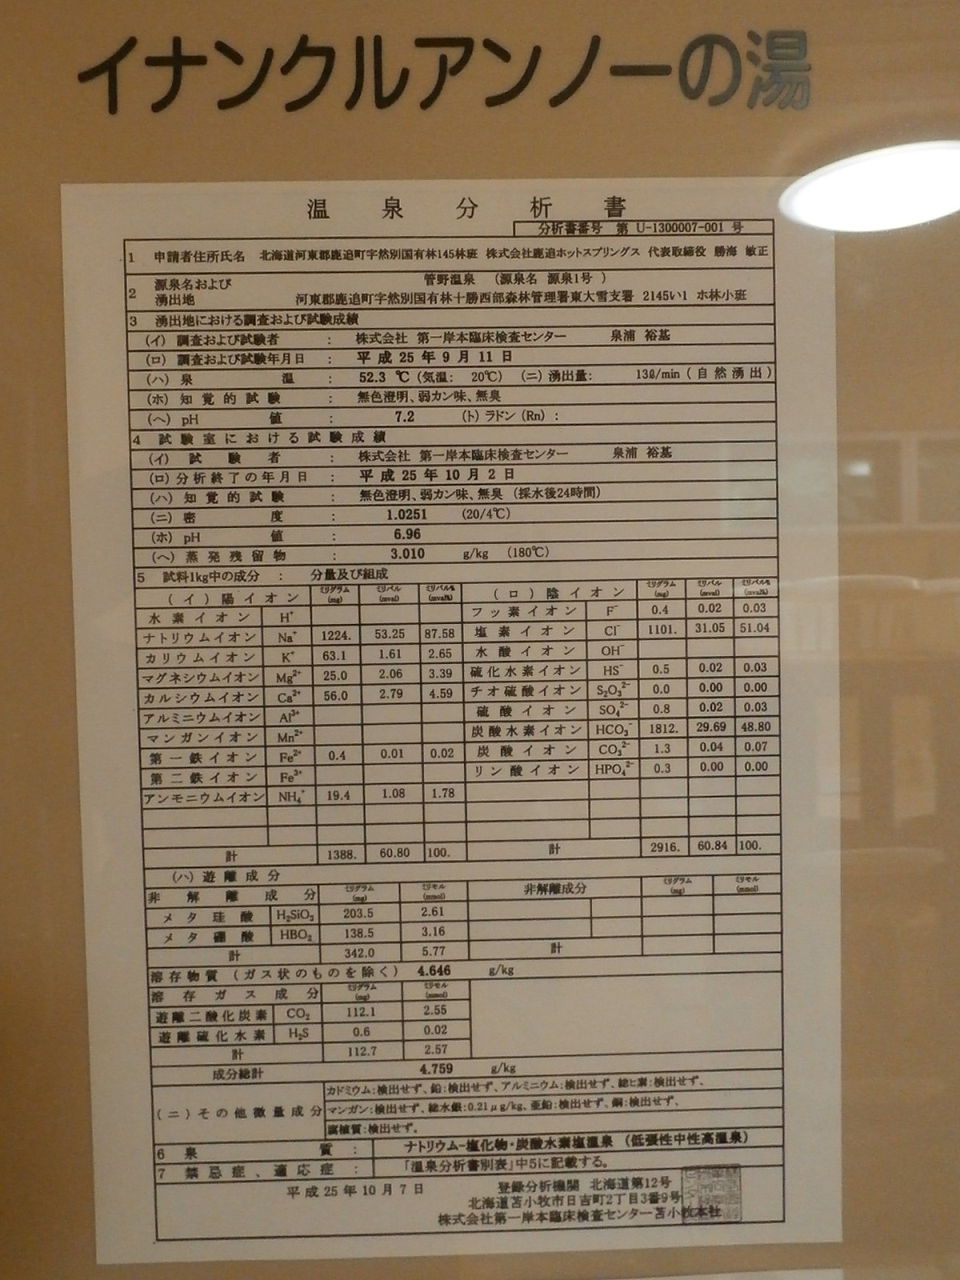 イナンクルアンノーの湯
温泉分析書
分析書番号 第 U-1300007-001 号
1 申請者住所氏名 北海道河東郡鹿追町字然別国有林145林班 株式会社鹿追ホットスプリングス 代表取締役 勝海 敏正
2 源泉名および湧出地 管野温泉 (源泉名 源泉1号 )
河東郡鹿追町字然別国有林十勝西部森林管理署東大雪支署 2145い1 ホ林小班
3 湧出地における調査および試験成績
(イ) 調査および試験者 : 株式会社 第一岸本臨床検査センター 泉浦 裕基
(ロ) 調査および試験年月日 : 平成 25 年 9 月 11 日
(ハ) 泉温 : 52.3 ℃ (気温: 20℃) (ニ) 湧出量: 13ℓ/min ( 自然湧出 )
(ホ) 知覚的試験 : 無色澄明、弱カン味、無臭
(ヘ) pH 値 : 7.2 (ト) ラドン (Rn) :
4 試験室における試験成績
(イ) 試験者 : 株式会社 第一岸本臨床検査センター 泉浦 裕基
(ロ) 分析終了の年月日 : 平成 25 年 10 月 2 日
(ハ) 知覚的試験 : 無色澄明、弱カン味、無臭 (採水後24時間)
(ニ) 密度 : 1.0251 (20/4℃)
(ホ) pH 値 : 6.96
(ヘ) 蒸発残留物 : 3.010 g/kg (180℃)
5 試料1kg中の成分 : 分量及び組成
(イ) 陽イオン ミリグラム (mg) ミリバル (mval) ミリバル% (mval%) (ロ) 陰イオン ミリグラム (mg) ミリバル (mval) ミリバル% (mval%)
水素イオン H⁺ フッ素イオン F⁻ 0.4 0.02 0.03
ナトリウムイオン Na⁺ 1224. 53.25 87.58 塩素イオン Cl⁻ 1101. 31.05 51.04
カリウムイオン K⁺ 63.1 1.61 2.65 水酸イオン OH⁻
マグネシウムイオン Mg²⁺ 25.0 2.06 3.39 硫化水素イオン HS⁻ 0.5 0.02 0.03
カルシウムイオン Ca²⁺ 56.0 2.79 4.59 チオ硫酸イオン S₂O₃²⁻ 0.0 0.00 0.00
アルミニウムイオン Al³⁺ 硫酸イオン SO₄²⁻ 0.8 0.02 0.03
マンガンイオン Mn²⁺ 炭酸水素イオン HCO₃⁻ 1812. 29.69 48.80
第一鉄イオン Fe²⁺ 0.4 0.01 0.02 炭酸イオン CO₃²⁻ 1.3 0.04 0.07
第二鉄イオン Fe³⁺ リン酸イオン HPO₄²⁻ 0.3 0.00 0.00
アンモニウムイオン NH₄⁺ 19.4 1.08 1.78
計 1388. 60.80 100. 計 2916. 60.84 100.
(ハ) 遊離成分
非解離成分 ミリグラム (mg) ミリモル (mmol) 非解離成分 ミリグラム (mg) ミリモル (mmol)
メタ珪酸 H₂SiO₃ 203.5 2.61
メタ硼酸 HBO₂ 138.5 3.16
計 342.0 5.77 計
溶存物質 (ガス状のものを除く) 4.646 g/kg
溶存ガス成分 ミリグラム (mg) ミリモル (mmol)
遊離二酸化炭素 CO₂ 112.1 2.55
遊離硫化水素 H₂S 0.6 0.02
計 112.7 2.57
成分総計 4.759 g/kg
(ニ) その他微量成分 カドミウム:検出せず、鉛:検出せず、アルミニウム:検出せず、総ヒ素:検出せず、
マンガン:検出せず、総水銀:0.21μg/kg、亜鉛:検出せず、銅:検出せず、
腐植質:検出せず。
6 泉質 : ナトリウム-塩化物・炭酸水素塩温泉 (低張性中性高温泉)
7 禁忌症、適応症 : 「温泉分析書別表」中5に記載する。
平成 25 年 10 月 7 日 登録分析機関 北海道第12号
北海道苫小牧市日吉町2丁目3番9号
株式会社第一岸本臨床検査センター苫小牧本社